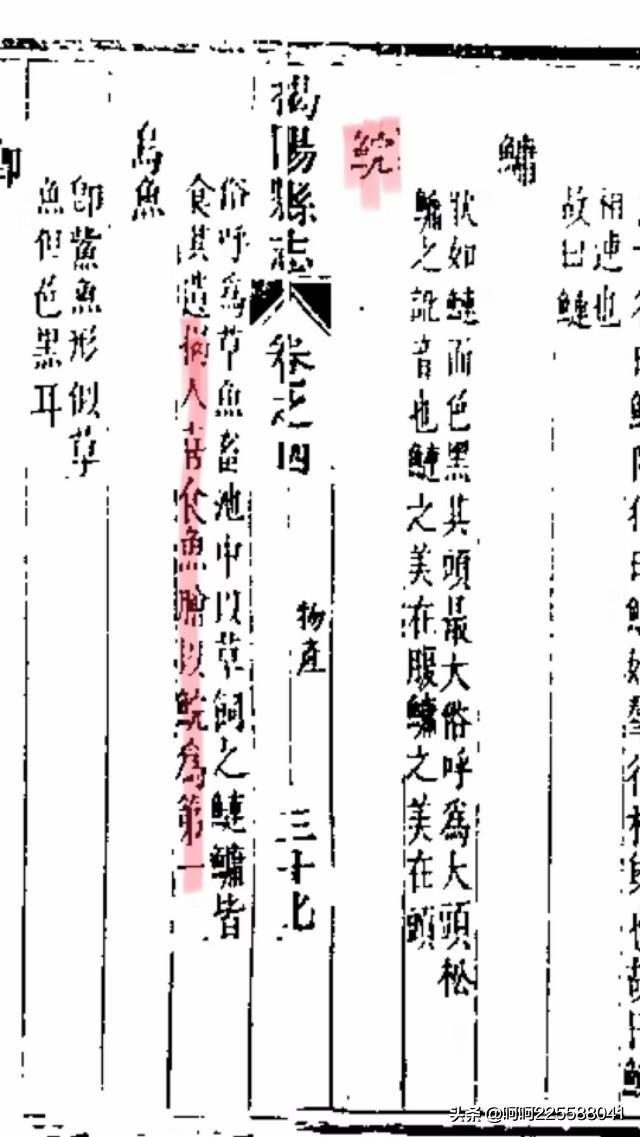 好羣行相與也故曰
相連也
故曰鰱
鱅
狀如鰱而色黑其頭最大俗呼爲大頭松
鱅之訛音也鰱之美在腹鱅之美在頭
鯇
揭陽縣志 卷之四 物產 三十七
俗呼爲草魚畜池中以草飼之鰱鱅皆
食其遺揭人食魚膾以鯇爲第一
烏魚
即魚形似草
魚但色黑耳
头条 @呵呵225588041